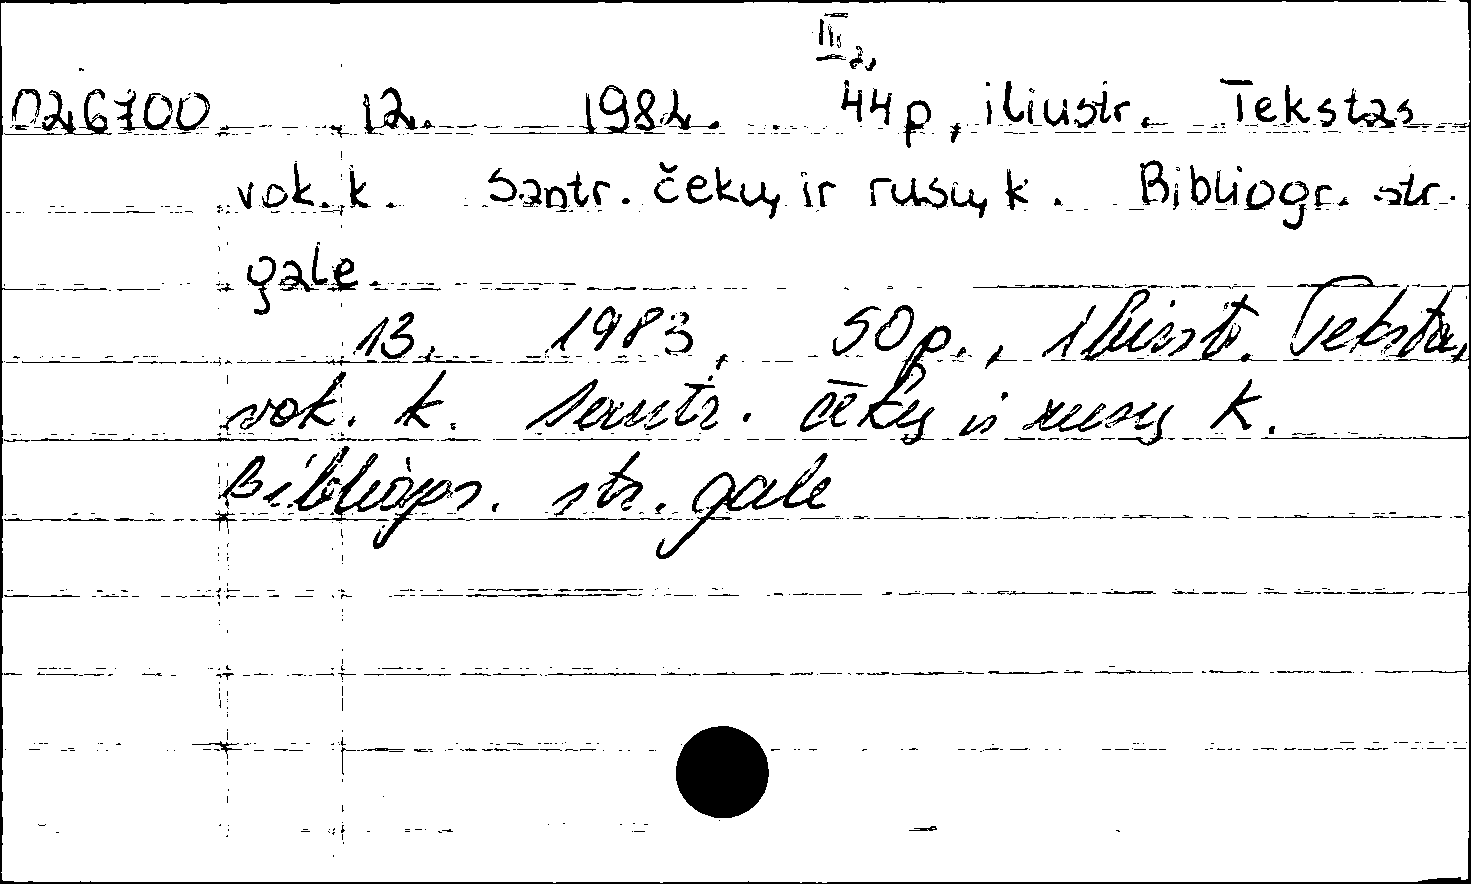 III 2,
026700 12. 1982. 44p, iliustr. Tekstas
vok. k. Santr. čekų ir rusų k. Bibliogr. str.
gale.
13. 1983, 50p., iliustr. Tekstas
vok. k. Santr. čekų ir rusų k.
Bibliogr. str. gale